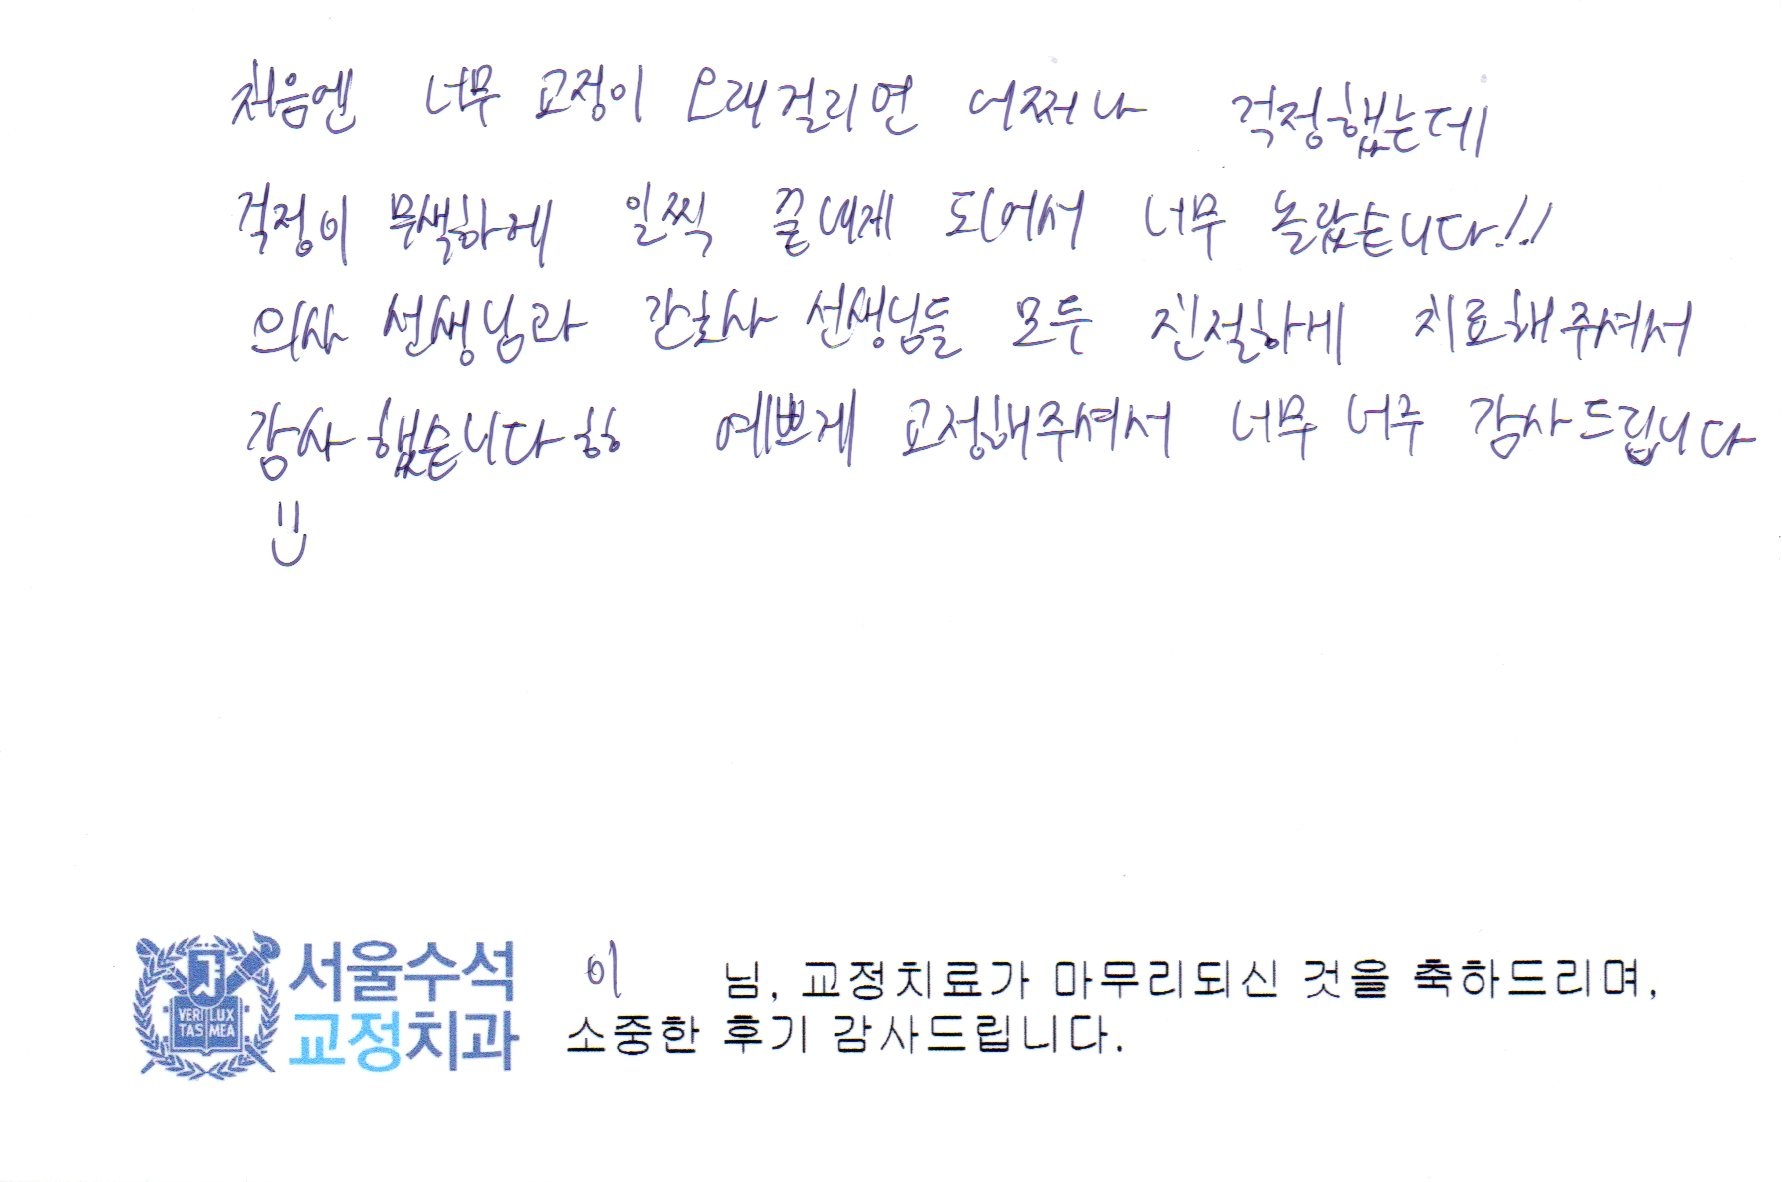 처음엔 너무 교정이 오래걸리면 어쩌나 걱정했는데
걱정이 무색하게 일찍 끝내게 되어서 너무 놀랐습니다!!
의사 선생님과 간호사 선생님들 모두 친절하게 치료해주셔서
감사했습니다ㅎㅎ 예쁘게 교정해주셔서 너무 너무 감사드립니다
VERI LUX
TAS MEA
서울수석
교정치과
이 님, 교정치료가 마무리되신 것을 축하드리며,
소중한 후기 감사드립니다.